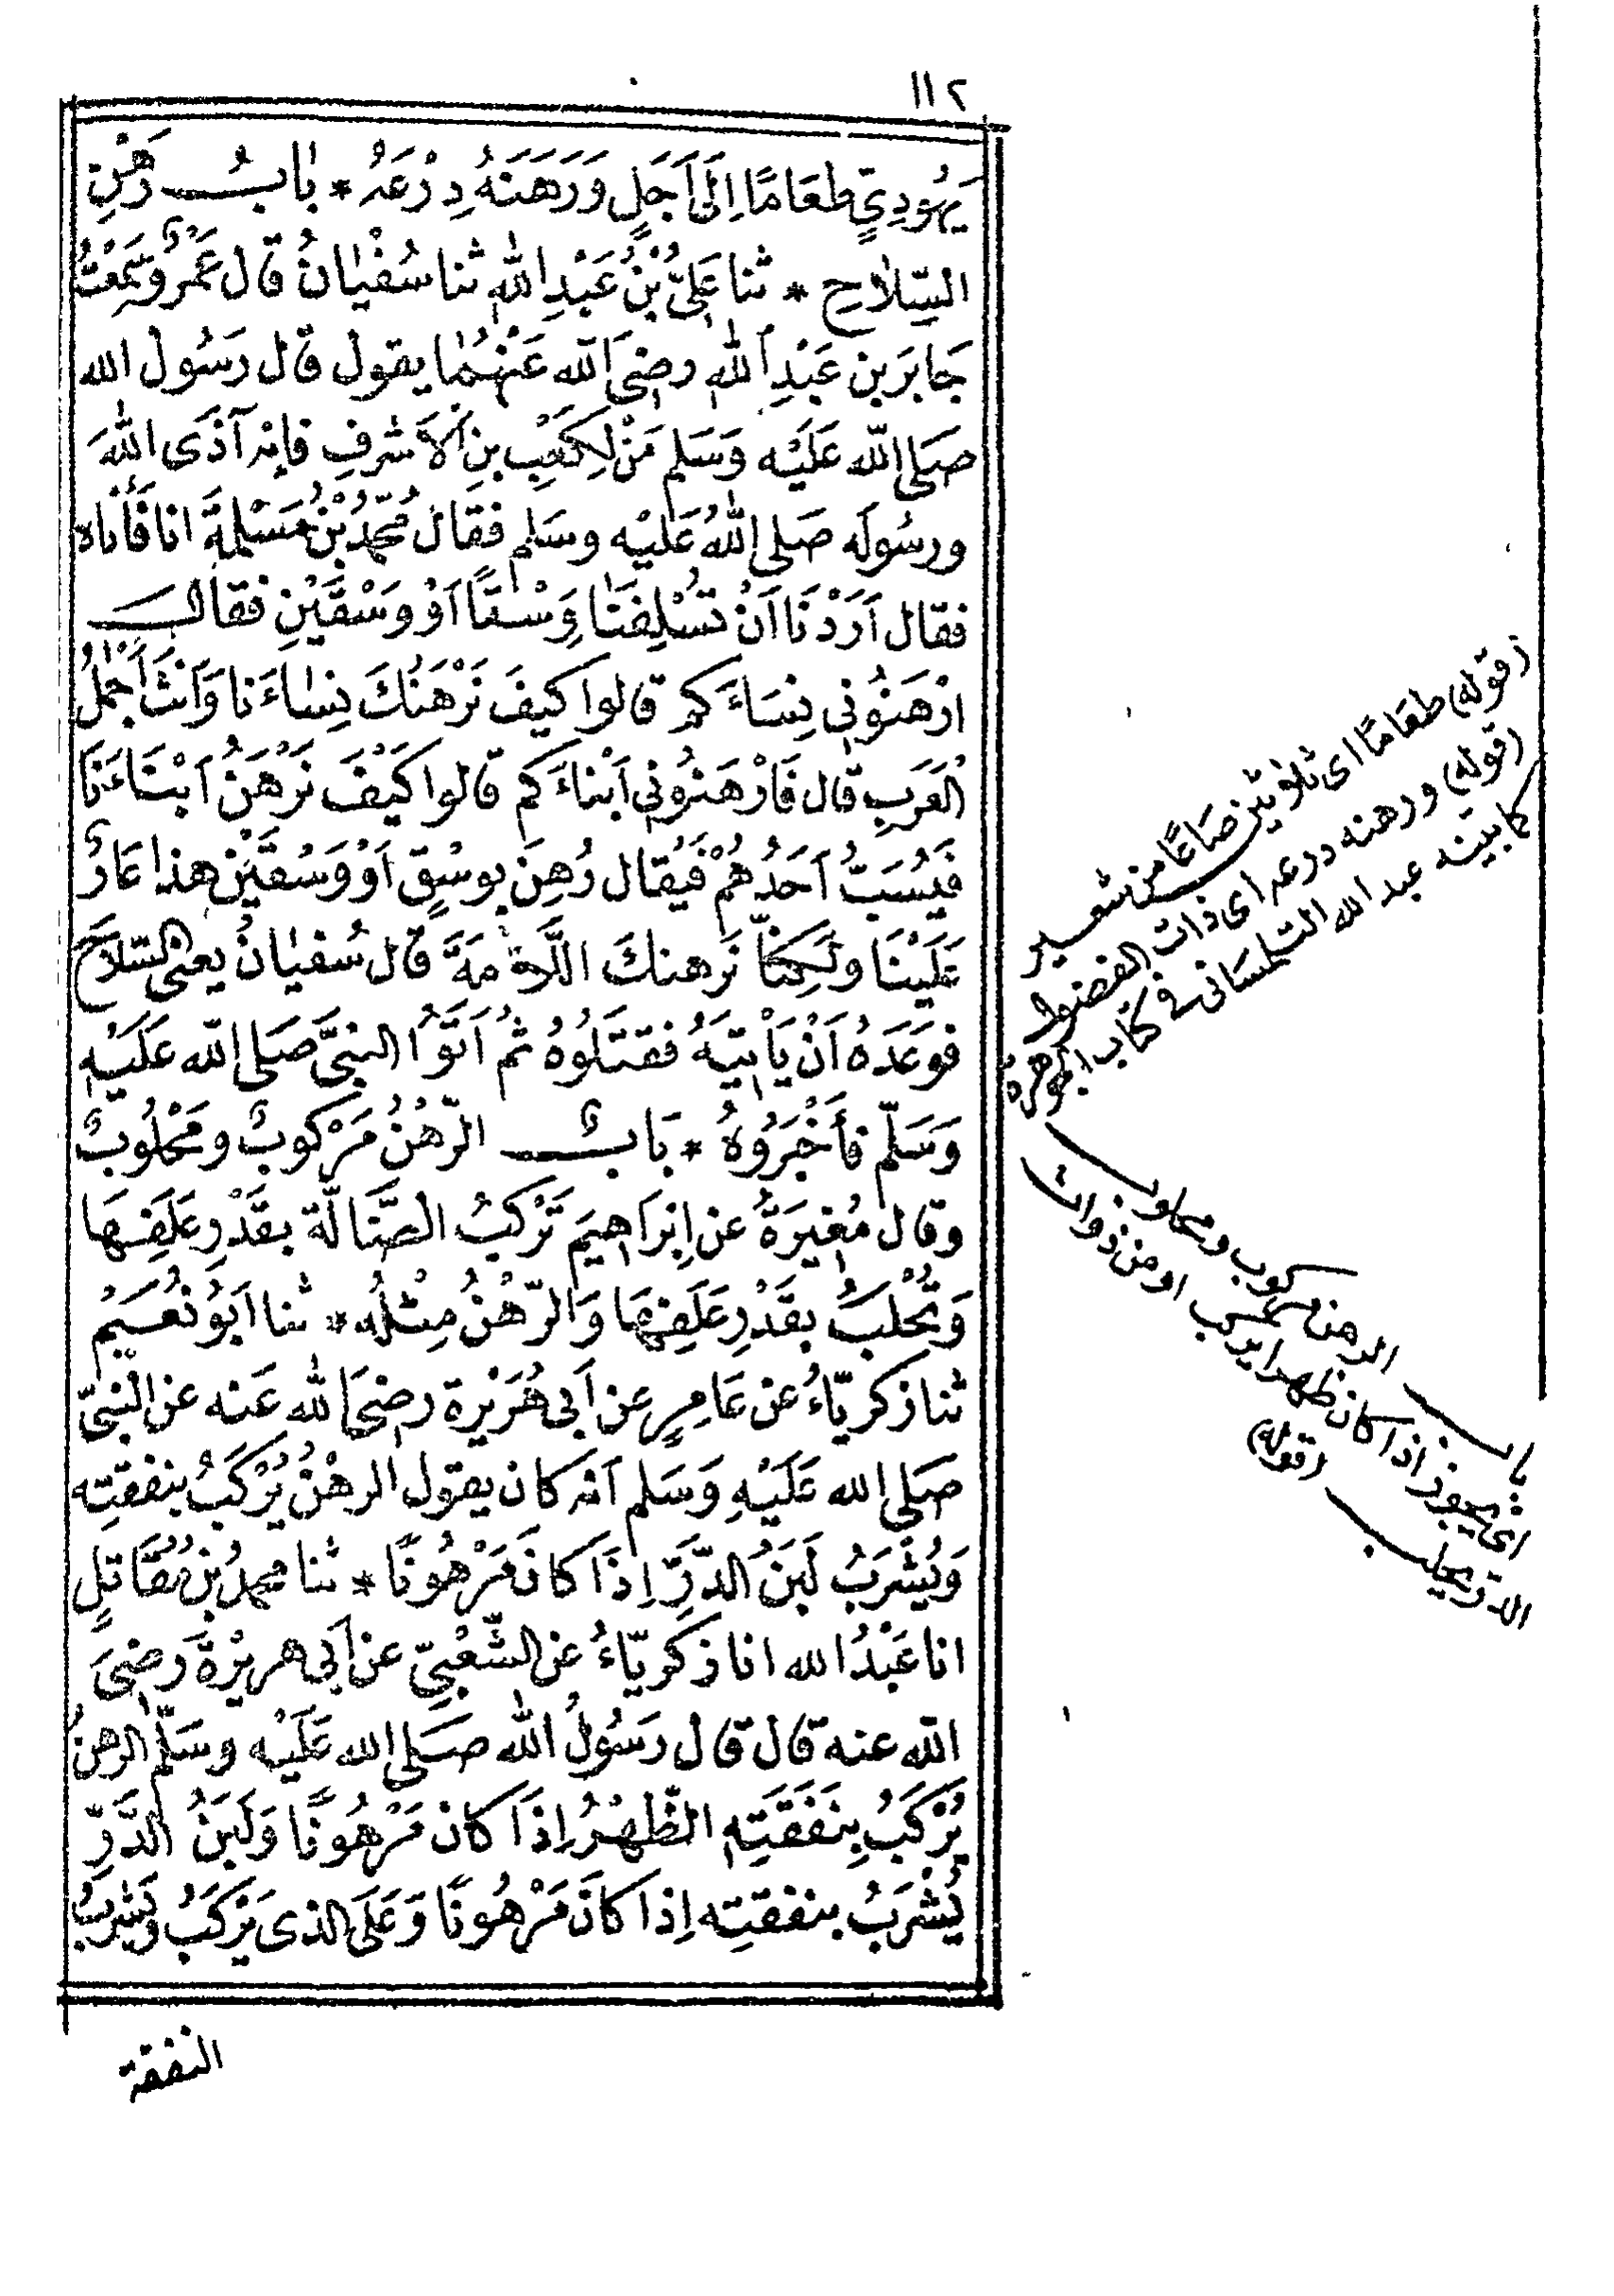 ١١٢
يَهُودِيٍّ طعَامًا اِلَى اَجَلٍ وَرَهَنَهُ دِرْعَهُ * بَابُ رَهْنِ
السِّلاحِ * ثنا عَلِىُّ بْنُ عَبْدِ اللهِ ثنا سُفْيَانُ قال عَمْرٌو سَمِعْتُ
جَابِرَ بن عَبْدِ اللهِ رضىَ الله عَنْهُمَا يقول قال رَسُول الله
صَلى الله عَلَيْه وَسَلم مَنْ لِكَعْبِ بنِ الاَشرفِ فانه آذَى اللهَ
ورسُولَه صَلى اللهُ عَليْه وسَلم فقال مُحمّدُ بْنُ مَسْلمةَ انا فَأتاه
فقال اَرَدْنَا اَنْ تُسْلِفَنَا وَسْقًا اَوْ وَسْقَيْنِ فقال
ارْهَنُونِى نِسَاءَكم قالوا كيفَ نَرْهَنُكَ نِسَاءَنا وَاَنْتَ اَجْملُ
الْعَرَبِ قال فَارْهَنُونِى اَبْناءَكم قالوا كَيْفَ نَرْهَنُ اَبْنَاءَنَا
فَيُسَبُّ اَحَدُهُمْ فَيُقال رُهِنَ بوسْقٍ اَوْ وَسْقَيْنِ هذا عَارٌ
عَلَيْنَا ولكِنَّا نَرهنكَ اللَّاْمَةَ قال سُفيَانُ يعنى السّلاَحَ
فوَعَدَهُ اَنْ يَاْتِيَهُ فقتَلُوهُ ثمُ اَتَوُا النبىَّ صَلى الله عَلَيْهِ
وَسَلّم فأخْبَرُوهُ * بَابٌ الرّهْنُ مَرْكوبٌ ومَحْلُوبٌ
وقال مُغِيرَةُ عن اِبْرَاهِيمَ تُرْكبُ الضَّالّة بقَدْرِ عَلَفِهَا
وَتُحْلَبُ بقَدْرِ عَلَفِهَا وَالرّهْنُ مِثْلُه * ثنا اَبُو نُعَيْم
ثنا زكريّاءُ عن عَامِرٍ عن اَبى هُرَيْرة رضىَ الله عَنه عن النبىّ
صَلى الله عَلَيْهِ وَسَلم اَنه كان يقول الرهْنُ يُرْكَبُ بنفقتِه
وَيُشْرَبُ لَبَنُ الدَّرِّ اِذَا كانَ مَرْهُونًا * ثنا محمدُ بْنُ مُقَاتلٍ
انا عَبْدُ الله انا زكريّاءُ عن الشّعْبِىّ عن اَبى هريْرةَ رَضىَ
الله عنه قال قال رَسُولُ الله صَلى الله عَلَيْه وسَلّم الرهنُ
يُرْكَبُ بِنَفَقَتِه الظّهْرُ اِذَا كان مَرْهُونًا وَلَبَنُ الدَّرِّ
يُشْرَبُ بنفقتِه اِذا كانَ مَرْهُونًا وَعَلَى الذى يَرْكَبُ وَيَشْرَبُ
النفقة
(قوله) طعَامًا اى ثلاثين صَاعًا من شعير
(قوله) ورهنه درعه اى ذات الفضول
كما بينه عبد الله التلمسانى فى كتاب الجوهرة
باب الرهن مركوب ومحلوب
اى يجوز اذا كان ظهرا يركب او من ذوات
الدر يحلب (قوله)